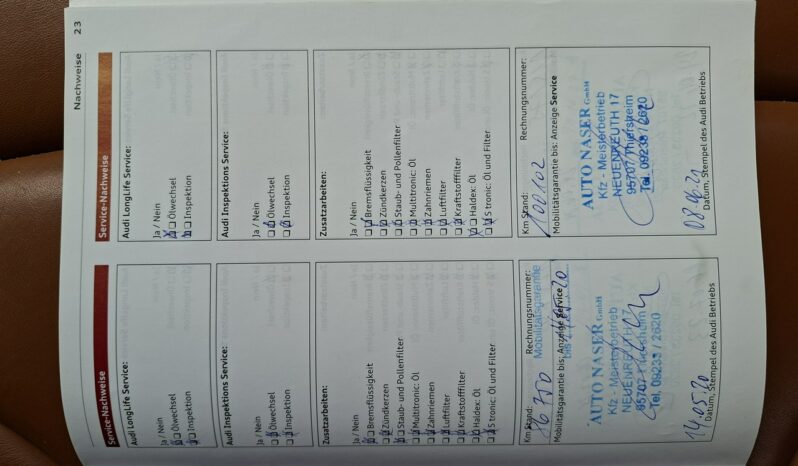 Nachweise 23
Service-Nachweise
Audi LongLife Service:
Ja / Nein
Ölwechsel
Inspektion
Audi Inspektions Service:
Ja / Nein
Ölwechsel
Inspektion
Zusatzarbeiten:
Ja / Nein
Bremsflüssigkeit
Zündkerzen
Staub- und Pollenfilter
Multitronic: Öl
Zahnriemen
Luftfilter
Kraftstofffilter
Haldex: Öl
S tronic: Öl und Filter
Km Stand: Rechnungsnummer:
86750 Mobilitätsgarantie
Mobilitätsgarantie bis: Anzeige Service
bis
AUTO NASER GmbH
Kfz - Meisterbetrieb
NEUENREUTH 17
95707 Thiersheim
Tel. 09233 / 2620
14.05.20
Datum, Stempel des Audi Betriebs
Service-Nachweise
Audi LongLife Service:
Ja / Nein
Ölwechsel
Inspektion
Audi Inspektions Service:
Ja / Nein
Ölwechsel
Inspektion
Zusatzarbeiten:
Ja / Nein
Bremsflüssigkeit
Zündkerzen
Staub- und Pollenfilter
Multitronic: Öl
Zahnriemen
Luftfilter
Kraftstofffilter
Haldex: Öl
S tronic: Öl und Filter
Km Stand: Rechnungsnummer:
100102
Mobilitätsgarantie bis: Anzeige Service
AUTO NASER GmbH
Kfz - Meisterbetrieb
NEUENREUTH 17
95707 Thiersheim
Tel. 09233 / 2620
08.06.21
Datum, Stempel des Audi Betriebs